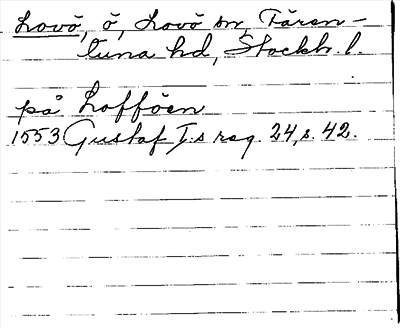 Lovö, ö, Lovö sn, Fären-
tuna hd, Stockh. l.
på Lofföen
1553 Gustaf I:s reg. 24, s. 42.